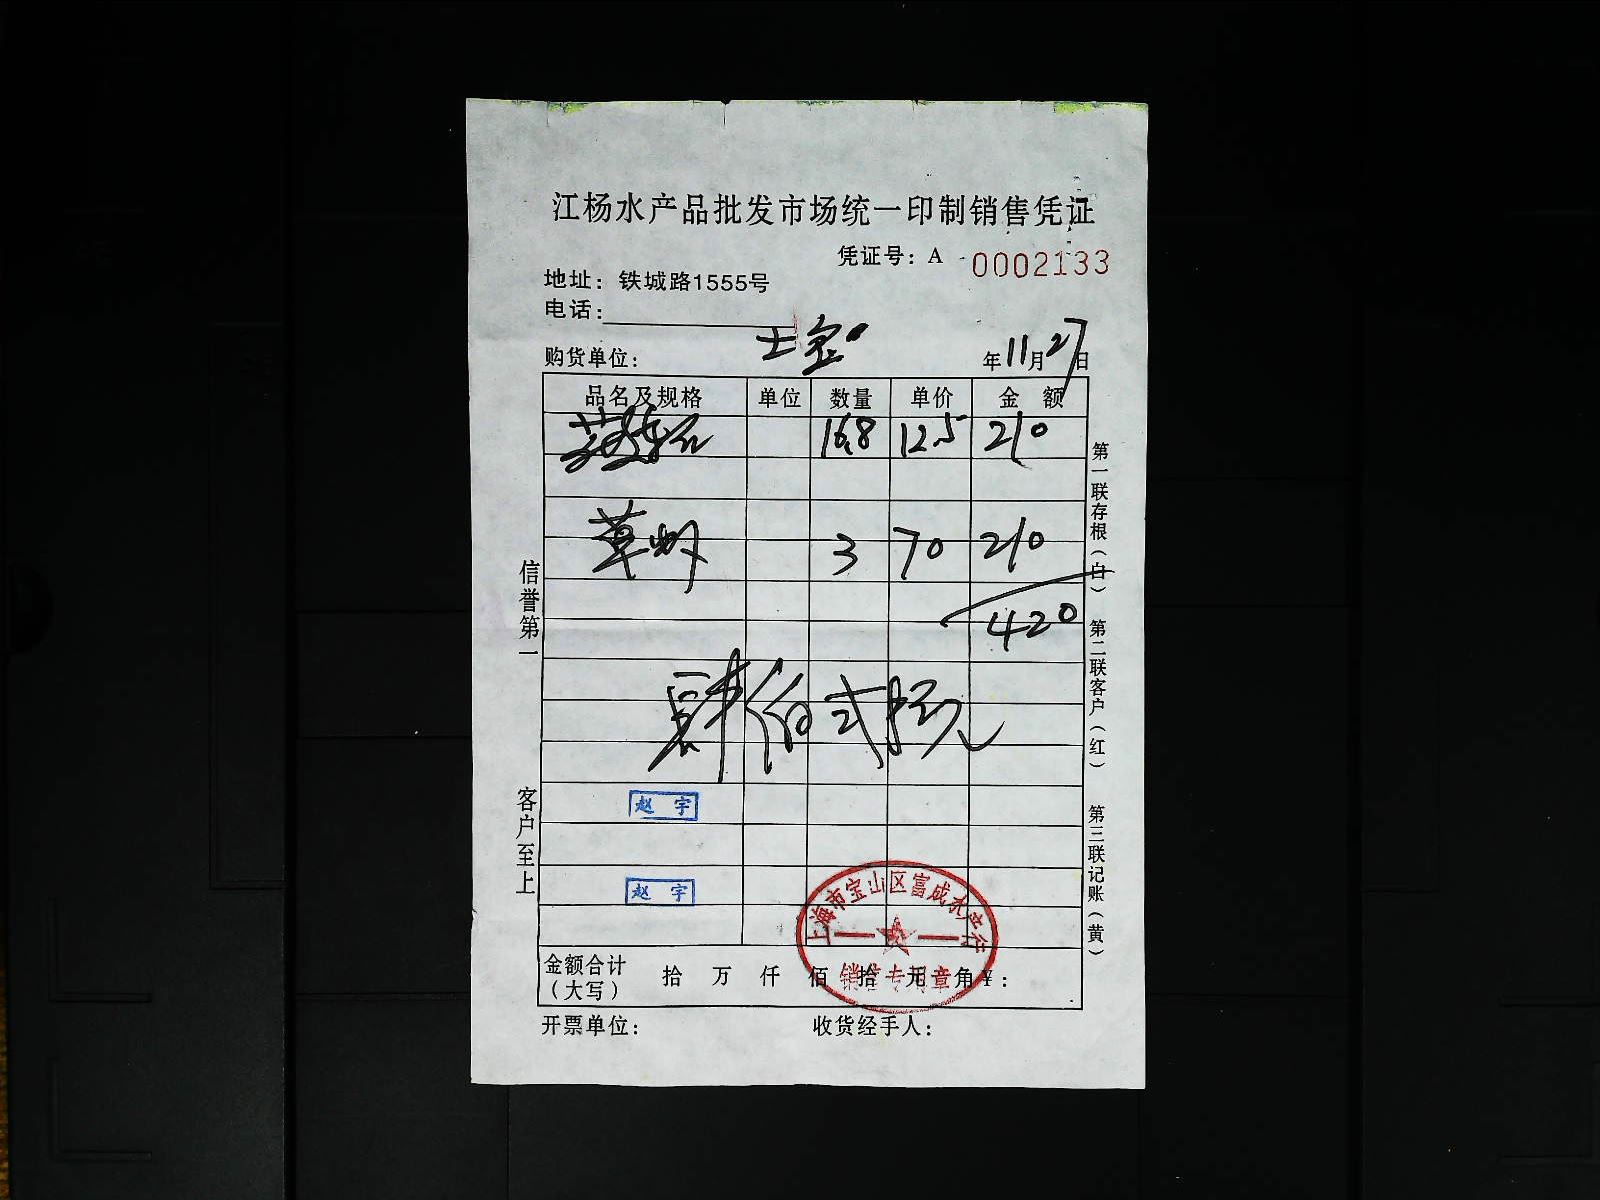 江杨水产品批发市场统一印制销售凭证
凭证号：A 0002133
地址：铁城路1555号
电话：
购货单位：
年11月27日
品名及规格 单位 数量 单价 金 额
16.8 12.5 210
草虾 3 70 210
420
肆佰弍拾元
赵 宇
赵 宇
上海市宝山区富成水产行
销售专用章
金额合计
（大写）
拾 万 仟 佰 拾 元 角 ¥：
开票单位： 收货经手人：
信誉第一
客户至上
第一联存根（白） 第二联客户（红） 第三联记账（黄）